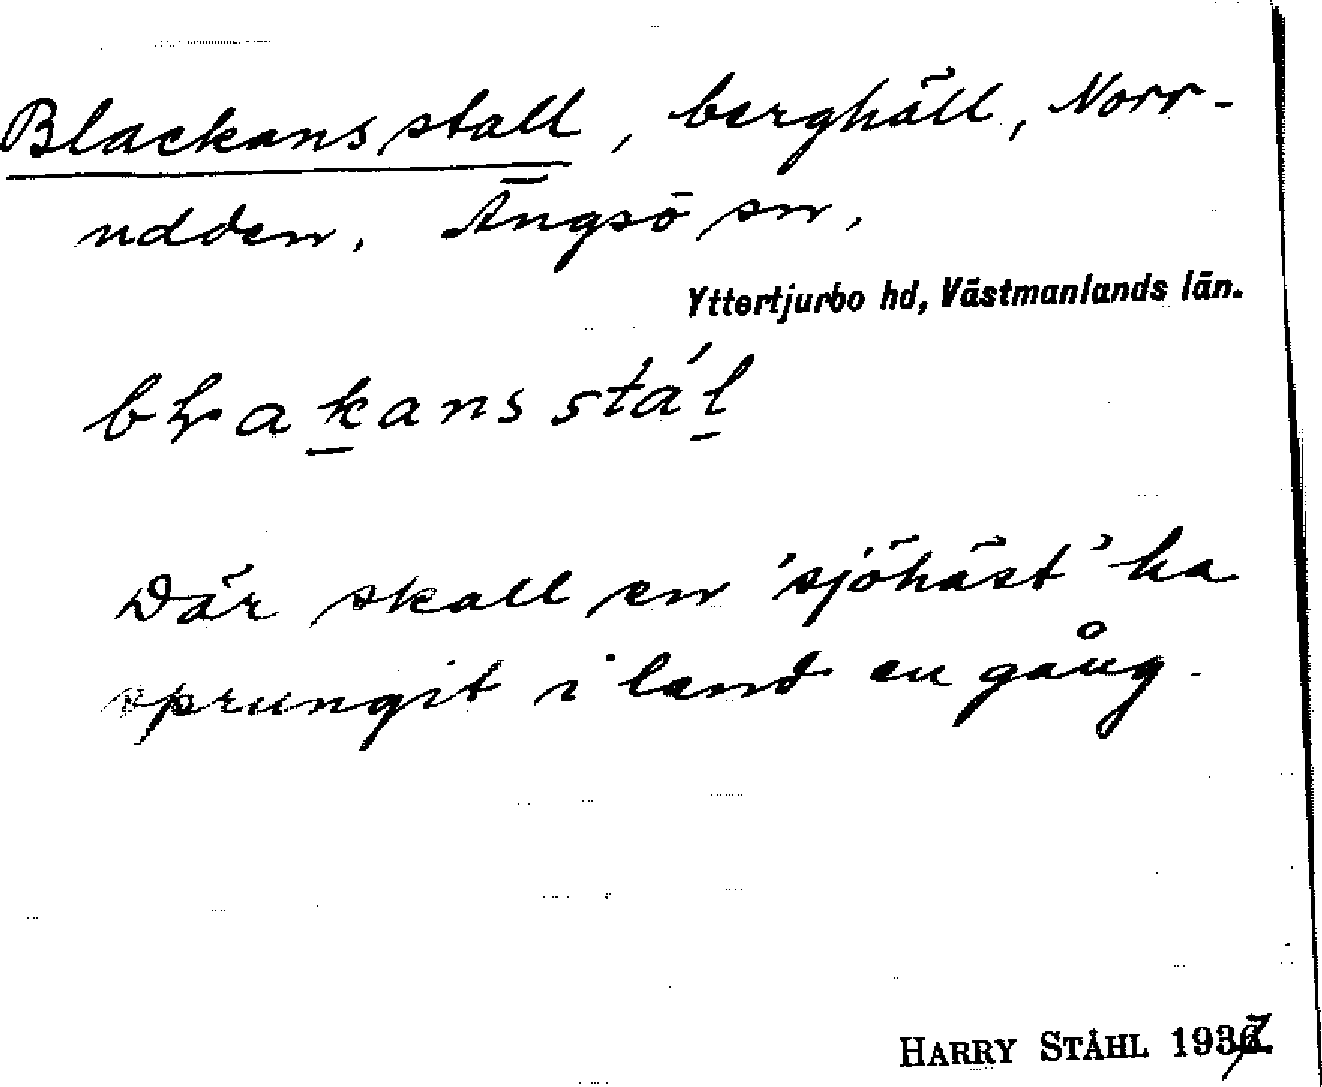 Blackans stall, berghäll, Norr-
udden, Ängsö sn,
Yttertjurbo hd, Västmanlands län.
Där skall en 'sjöhäst' ha
sprungit i land en gång.
HARRY STÅHL 1937.